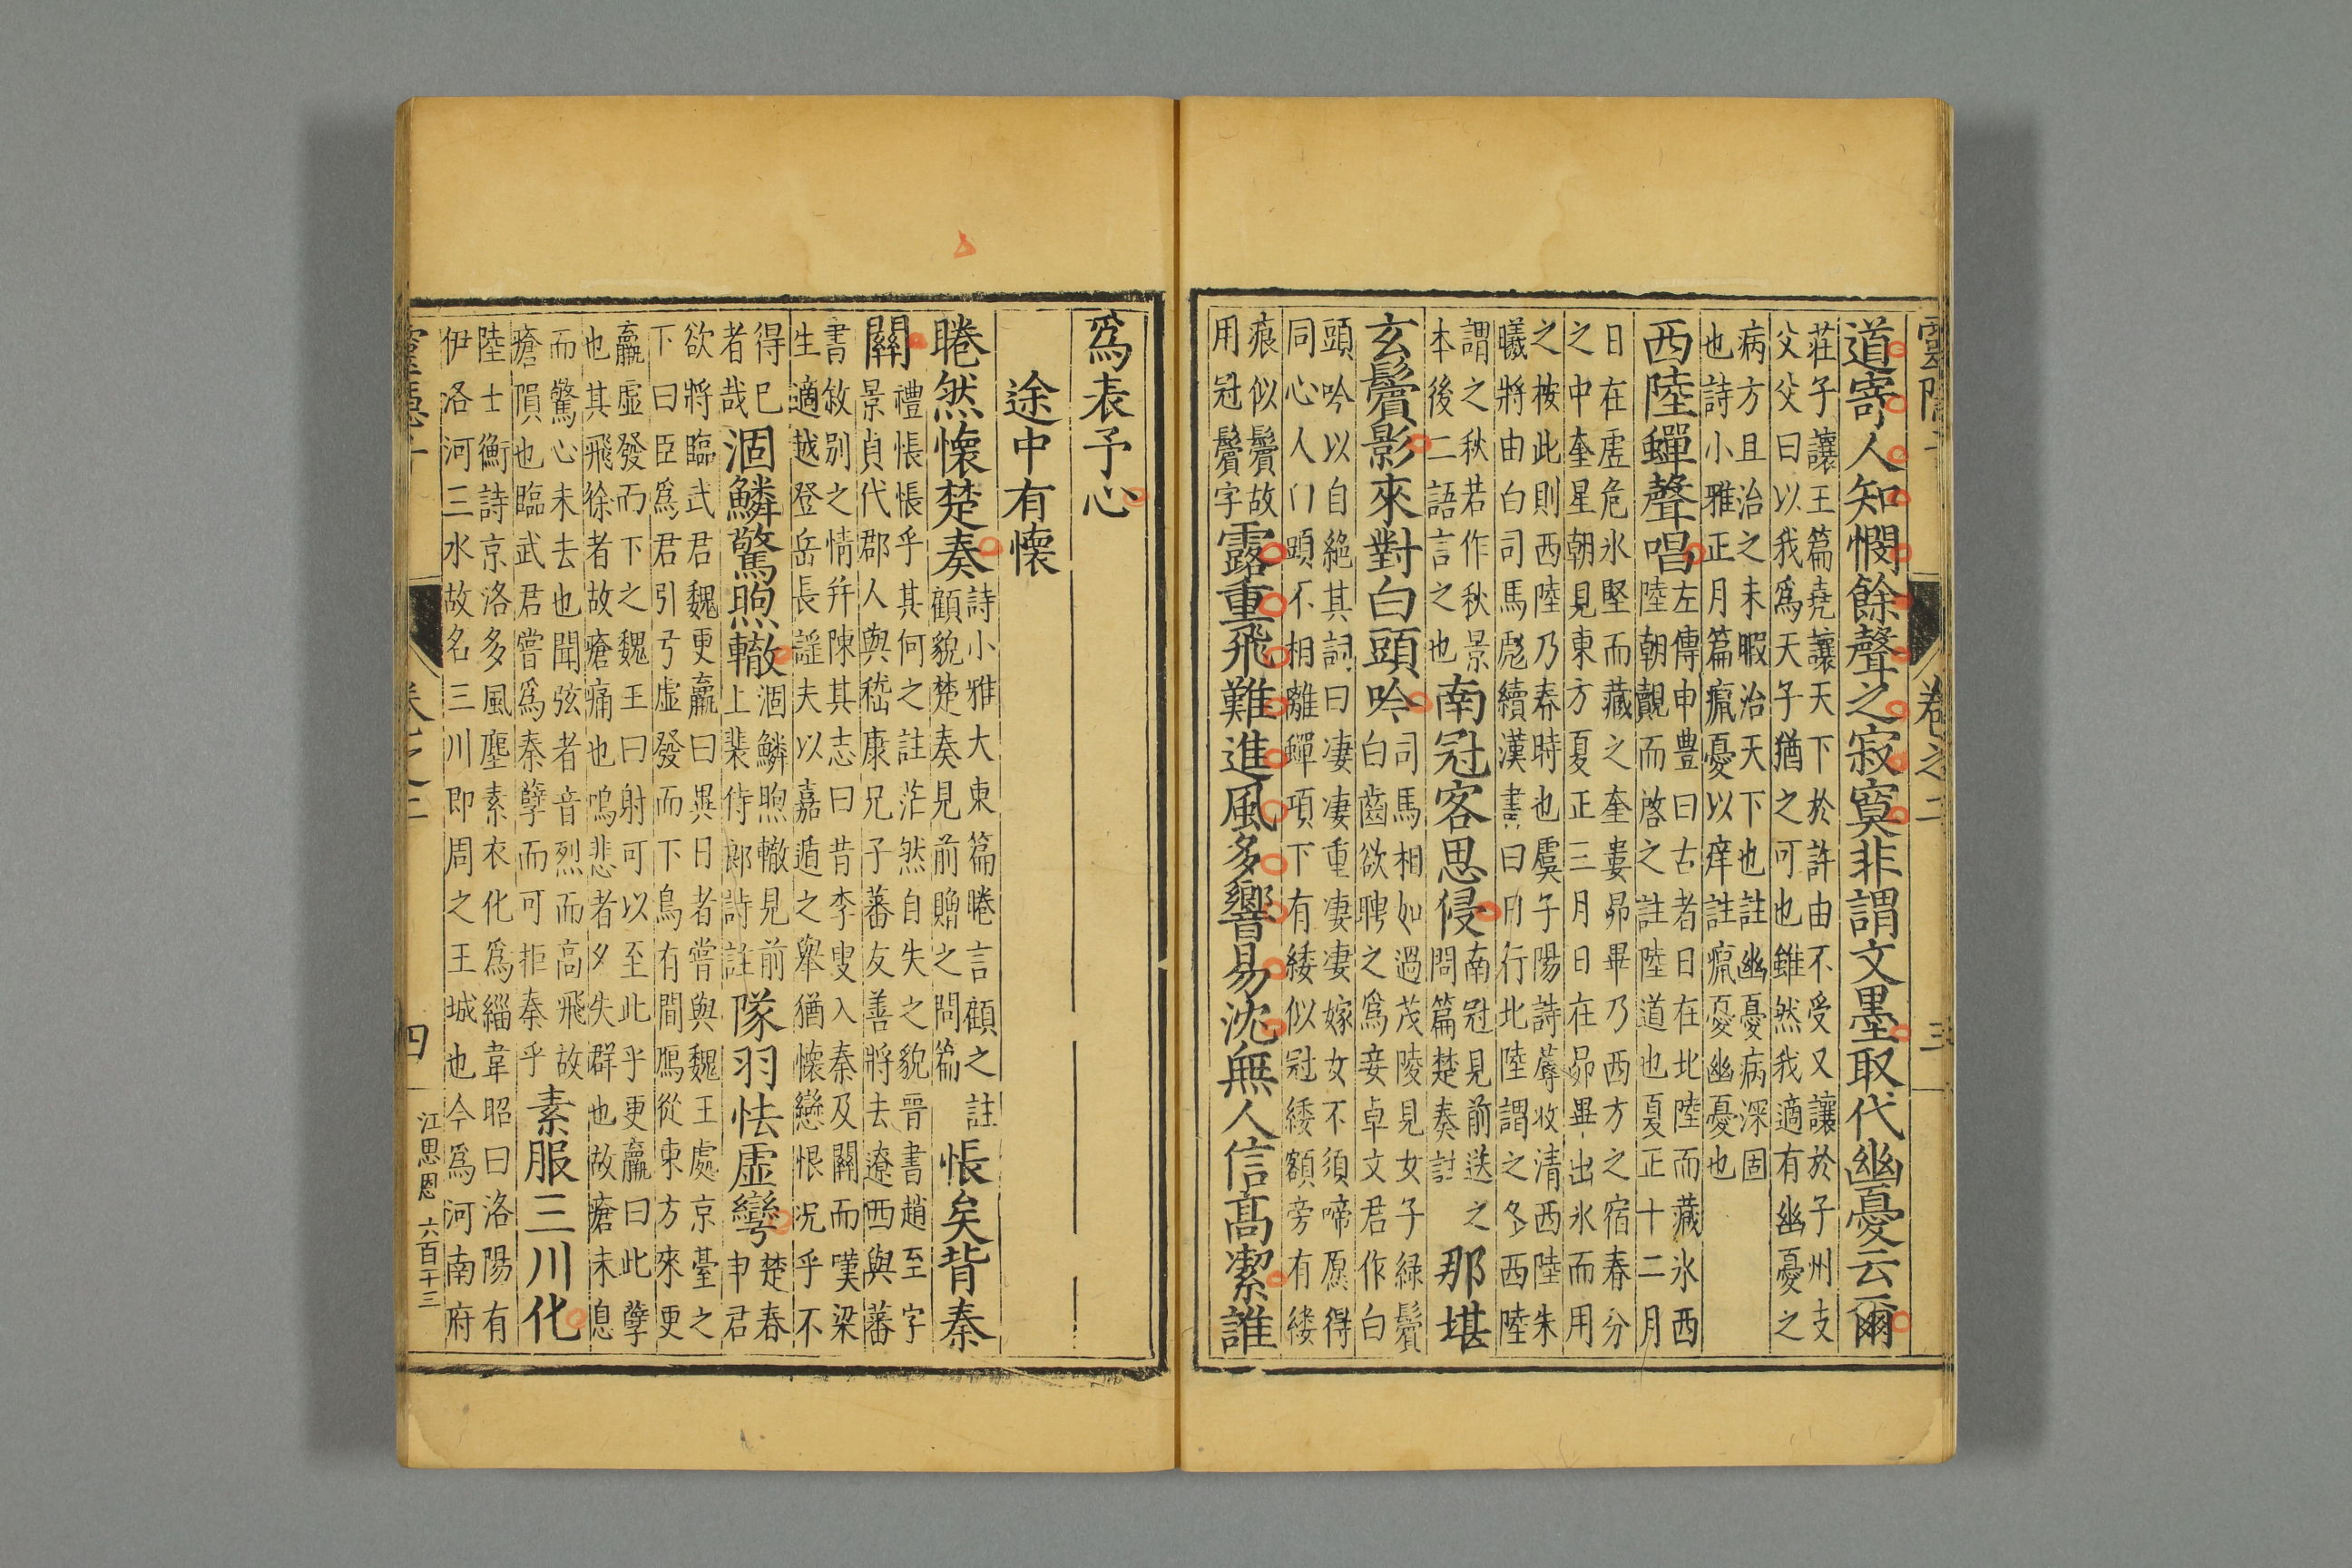 道寄人知憫餘聲之寂寞非謂文墨取代幽憂云爾
莊子讓王篇堯讓天下於許由不受又讓於子州支
父父曰以我爲天子猶之可也雖然我適有幽憂之
病方且治之未暇治天下也註幽憂病深固
也詩小雅正月篇癙憂以痒註癙憂幽憂也
西陸蟬聲唱
左傳申豊曰古者日在北陸而藏氷西
陸朝覿而啓之註陸道也夏正十二月
日在虛危氷堅而藏之奎婁昴畢乃西方之宿春分
之中奎星朝見東方夏正三月日在昴畢出氷而用
之按此則西陸乃春時也虞子陽詩蓐收清西陸朱
曦將由白司馬彪續漢書曰日行北陸謂之冬西陸
謂之秋若作秋景
本後二語言之也
南冠客思侵
南冠見前送之
問篇楚奏註
那堪
玄鬢影來對白頭吟
司馬相如過茂陵見女子綠鬢
白齒欲聘之爲妾卓文君作白
頭吟以自絶其詞曰凄凄重凄凄嫁女不須啼愿得
同心人白頭不相離蟬項下有緌似冠緌額旁有縷
痕似鬢故
用冠鬢字
露重飛難進風多響易沈無人信高潔誰
爲表予心
途中有懷
睠然懷楚奏
詩小雅大東篇睠言顧之註
顧貌楚奏見前贈之問篇
悵矣背秦
關
禮悵悵乎其何之註茫然自失之貌晋書趙至字
景貞代郡人與嵇康兄子蕃友善將去遼西與蕃
書敘別之情并陳其志曰昔李叟入秦及關而嘆梁
生適越登岳長謡夫以嘉遁之舉猶懷戀恨况乎不
得已
者哉
涸鱗驚煦轍
涸鱗煦轍見前
上裴侍郎詩註
隊羽怯虛彎
楚春
申君
欲將臨武君魏更羸曰異日者嘗與魏王處京臺之
下曰臣爲君引弓虛發而下鳥有間鴈從東方來更
羸虛發而下之魏王曰射可以至此乎更羸曰此孽
也其飛徐者故瘡痛也鳴悲者夕失群也故瘡未息
而驚心未去也聞弦者音烈而高飛故
瘡隕也臨武君嘗爲秦孽而可拒秦乎
素服三川化
陸士衡詩京洛多風塵素衣化爲緇韋昭曰洛陽有
伊洛河三水故名三川即周之王城也今爲河南府
卷之二
三
四
江思恩 六百十三